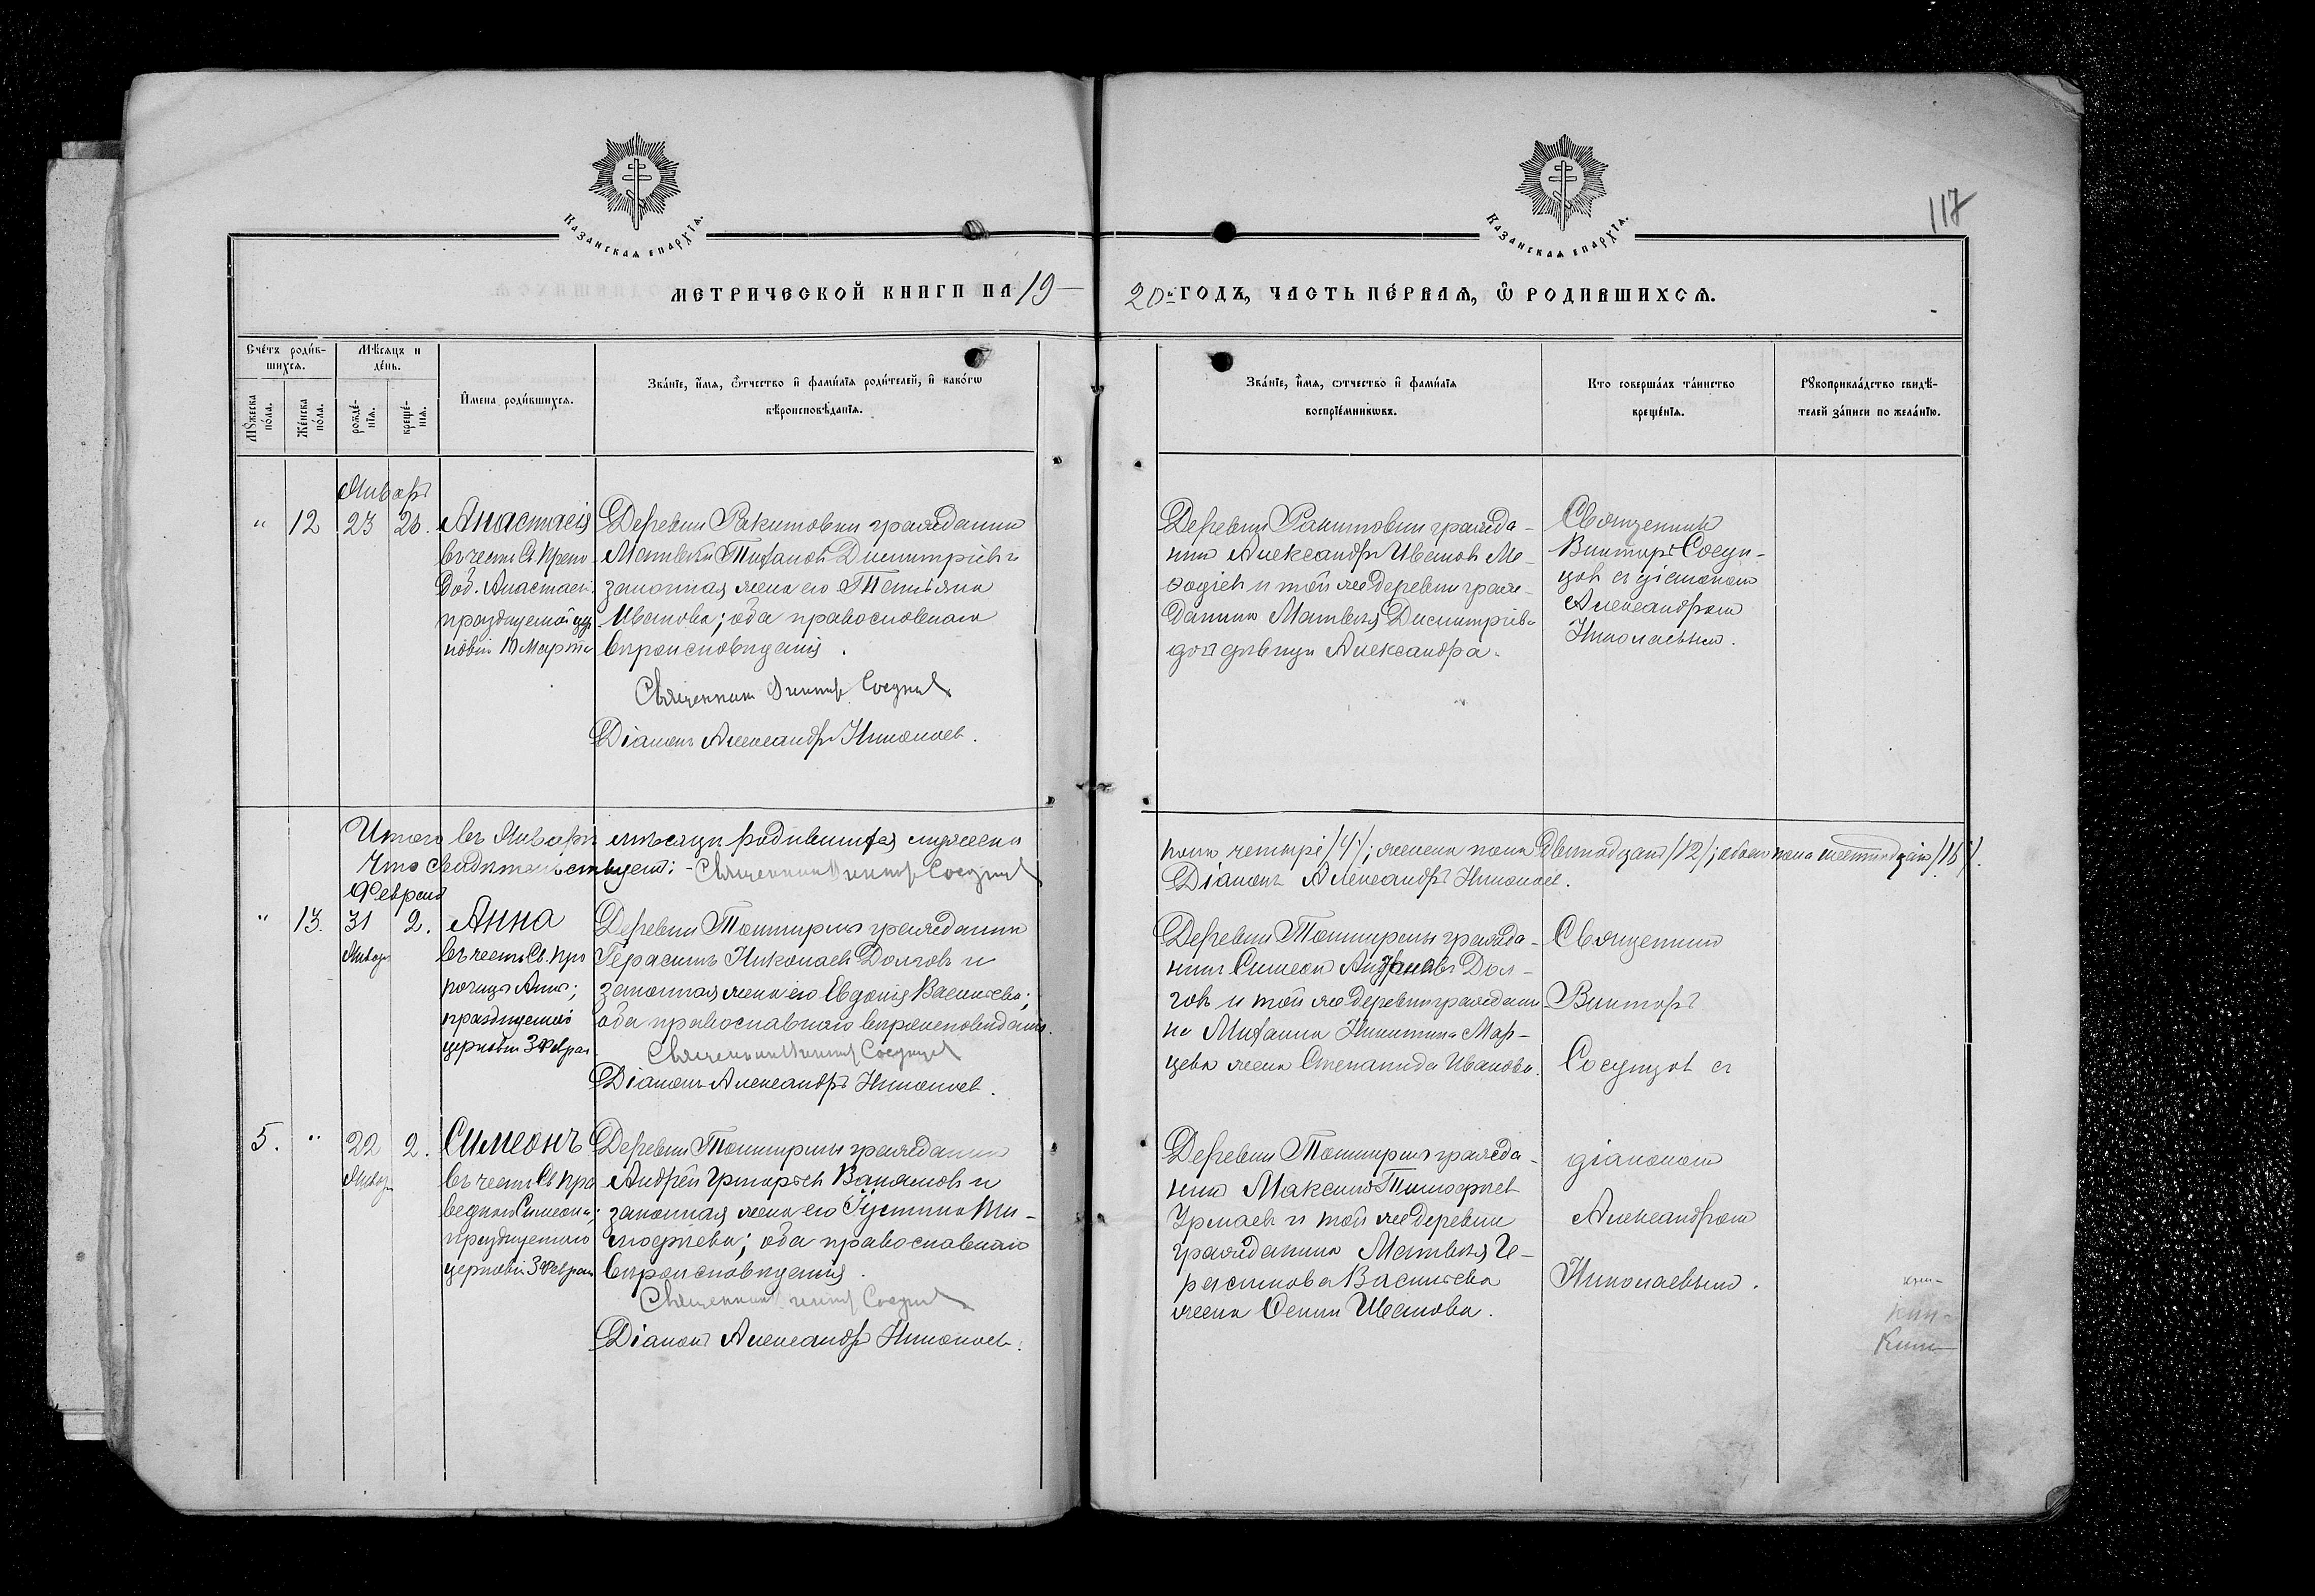 117
Казанская епархїя.
Казанская епархїя.
МЕТРИЧЕСКОЙ КНИГИ НА 19—
20й ГОДЪ, ЧАСТЬ ПЕ́РВАЯ, Ѽ РОДИВШИХСЯ.
Сче́тъ роди́в-
шихся.
Мѣсяцъ и
де́нь.
Мꙋ́жеска
по́ла.
Же́нска
по́ла.
рожде́-
нїя.
креще́-
нїя.
И҆мена роди́вшихся.
Зва́нїе, и҆́мя, ѻ҆́тчество и҆ фами́лїя роди́телей, и҆ како́гѡ
вѣроисповѣ́данїя.
Зва́нїе, и҆́мя, ѻ҆тчество и҆ фами́лїя
воспрїе́мникѡвъ.
Кто соверша́лъ та́инство
креще́нїя.
Рꙋкоприкла́дство свидѣ́-
телей за́писи по жела́нїю.
Январь
" 12 23 26. Анастасія
въ честь Св. Препо
доб. Анастасіи
празднуемой цер
ковію 10 Марта
Деревни Ракитовки гражданин
Матвей Дмитріев и
законная жена его Татьяна
Иванова; оба православнаго
вѣроисповѣданія.
Священник Виктор Сосунцов
Діаконъ Александръ Николаев.
Деревни Ракитовки гражда-
нин Александръ Иванов Ме-
ѳодіев и той же деревни граж-
данина Матвѣя Дмитріева
дочь дѣвица Александра.
Священник
Викторъ Сосун-
цов съ діаконом
Александром
Николаевым.
Итого въ Январѣ мѣсяцѣ родившихся мужеска
пола четыре /4/; женска пола двенадцать /12/; обоего пола шестнадцать /16/.
Что свидѣтельствует: - Священник Виктор Сосунцов
Діаконъ Александръ Николаев.
Февраль
" 13. 31 2. Анна
Январ
въ честь Св. Про
рочицы Анны;
празднуемой
церковію 3 Феврал
Деревни гражданин
Герасимъ Николаев Долговъ и
законная жена его Евдокія Васильева;
оба православнаго вѣроисповѣданія.
Священник Виктор Сосунцов
Діаконъ Александръ Николаев.
Деревни гражда-
нин Симеон Долгов
и той же деревни граждани
на Михаила Никитина Мар-
цева жена Степанида Иванова.
Священник
Викторъ
Сосунцов съ
5. " 22 2. Симеонъ
Январ
въ честь Св. Пра
веднаго Симеона;
празднуемаго
церковію 3 Феврал
Деревни гражданин
Андрей Григорьев и
законная жена его Iустина Ти-
мофеева; оба православнаго
вѣроисповѣданія.
Священник Виктор Сосунцов
Діаконъ Александръ Николаев.
Деревни гражда-
нин Максим Тимофеев
Урмаев и той же деревни
гражданина Матвѣя Ге-
расимова Васильева
жена Иванова.
діаконом
Александром
Николаевым.